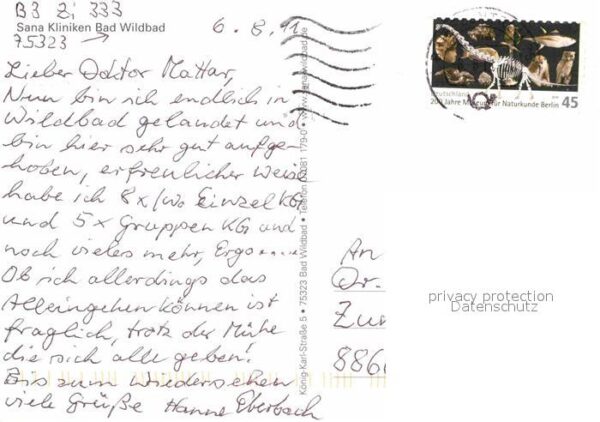 B3 Zi 333
Sana Kliniken Bad Wildbad
75323
6.8.11
Lieber Doktor Mattar,
Nun bin ich endlich in
Wildbad gelandet und
bin hier sehr gut aufge-
hoben, erfreulicher Weise
habe ich 8x/Wo Einzel KG
und 5x Gruppen KG und
noch vieles mehr, Ergo.....
Ob ich allerdings das
Alleingehen können ist
fraglich, trotz der Mühe
die sich alle geben!
Bis zum Wiedersehen
viele Grüße Hanne Eberbach
König-Karl-Straße 5 • 75323 Bad Wildbad • Telefon 07081 179-0 • www.sana-wildbad.de
Deutschland
200 Jahre Museum für Naturkunde Berlin 45
An
Dr.
886
privacy protection
Datenschutz